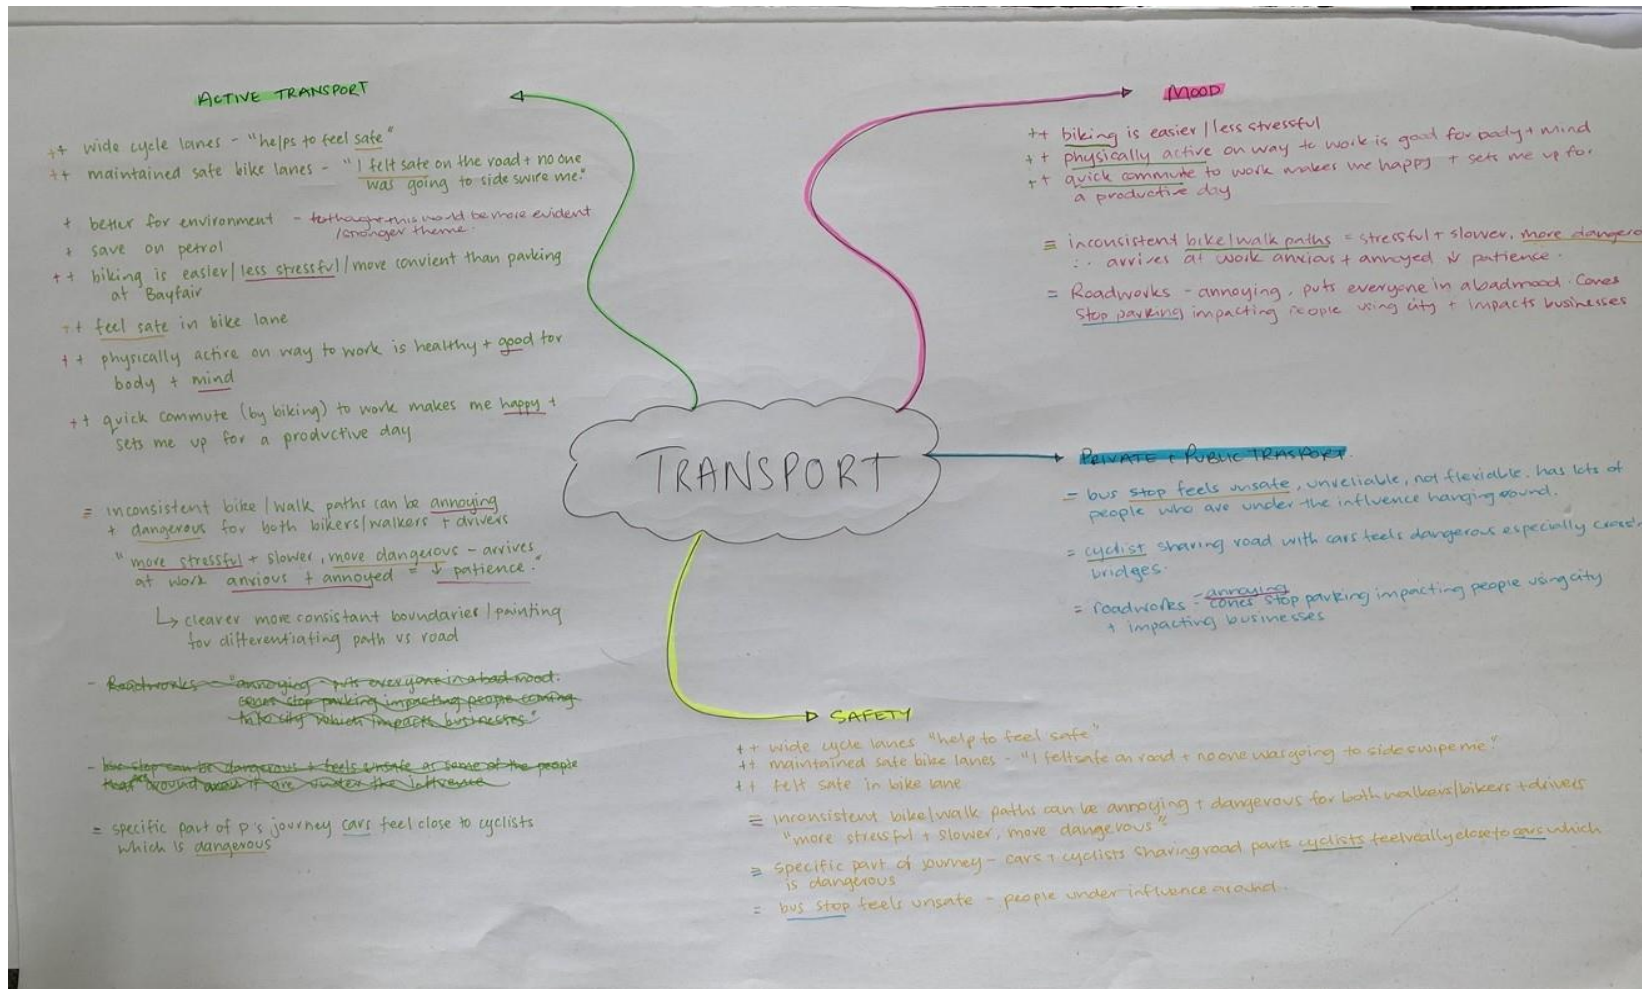 ACTIVE TRANSPORT
++ wide cycle lanes - "helps to feel safe"
++ maintained safe bike lanes - "I felt safe on the road + no one
was going to side swire me."
+ better for environment - this would be more evident
/stronger theme.
+ save on petrol
++ biking is easier/less stressful/more convient than parking
at Bayfair
++ feel safe in bike lane
++ physically active on way to work is healthy + good for
body + mind
++ quick commute (by biking) to work makes me happy +
sets me up for a productive day
≡ inconsistent bike/walk paths can be annoying
+ dangerous for both bikers/walkers + drivers
"more stressful + slower, more dangerous - arrives
at work anxious + annoyed = ↓ patience."
↳ clearer more consistant boundaries/painting
for differentiating path vs road
- Roadworks - "annoying - puts everyone in a bad mood.
cones stop parking impacting people coming
into city which impacts businesses."
- bus stop can be dangerous + feels unsafe as some of the people
around are under the influence
= specific part of p's journey cars feel close to cyclists
which is dangerous
TRANSPORT
MOOD
++ biking is easier/less stressful
++ physically active on way to work is good for body + mind
++ quick commute to work makes me happy + sets me up for
a productive day
≡ inconsistent bike/walk paths = stressful + slower, more dangero
∴ arrives at work anxious + annoyed ↓ patience.
= Roadworks - annoying, puts everyone in a bad mood. Cones
stop parking impacting people using city + impacts businesses
PRIVATE + PUBLIC TRASPORT.
= bus stop feels unsafe, unreliable, not flexiable. has lots of
people who are under the influence hanging around.
= cyclist sharing road with cars feels dangerous especially
bridges.
= roadworks - annoying
cones stop parking impacting people using city
+ impacting businesses
SAFETY
++ wide cycle lanes "help to feel safe"
++ maintained safe bike lanes - "I felt safe on road + no one was going to side swipe me."
++ felt safe in bike lane
≡ inconsistent bike/walk paths can be annoying + dangerous for both walkers/bikers + drivers
"more stressful + slower, more dangerous"
= specific part of journey - cars + cyclists sharing road parts cyclists feel really close to cars which
is dangerous
= bus stop feels unsafe - people under influence around.